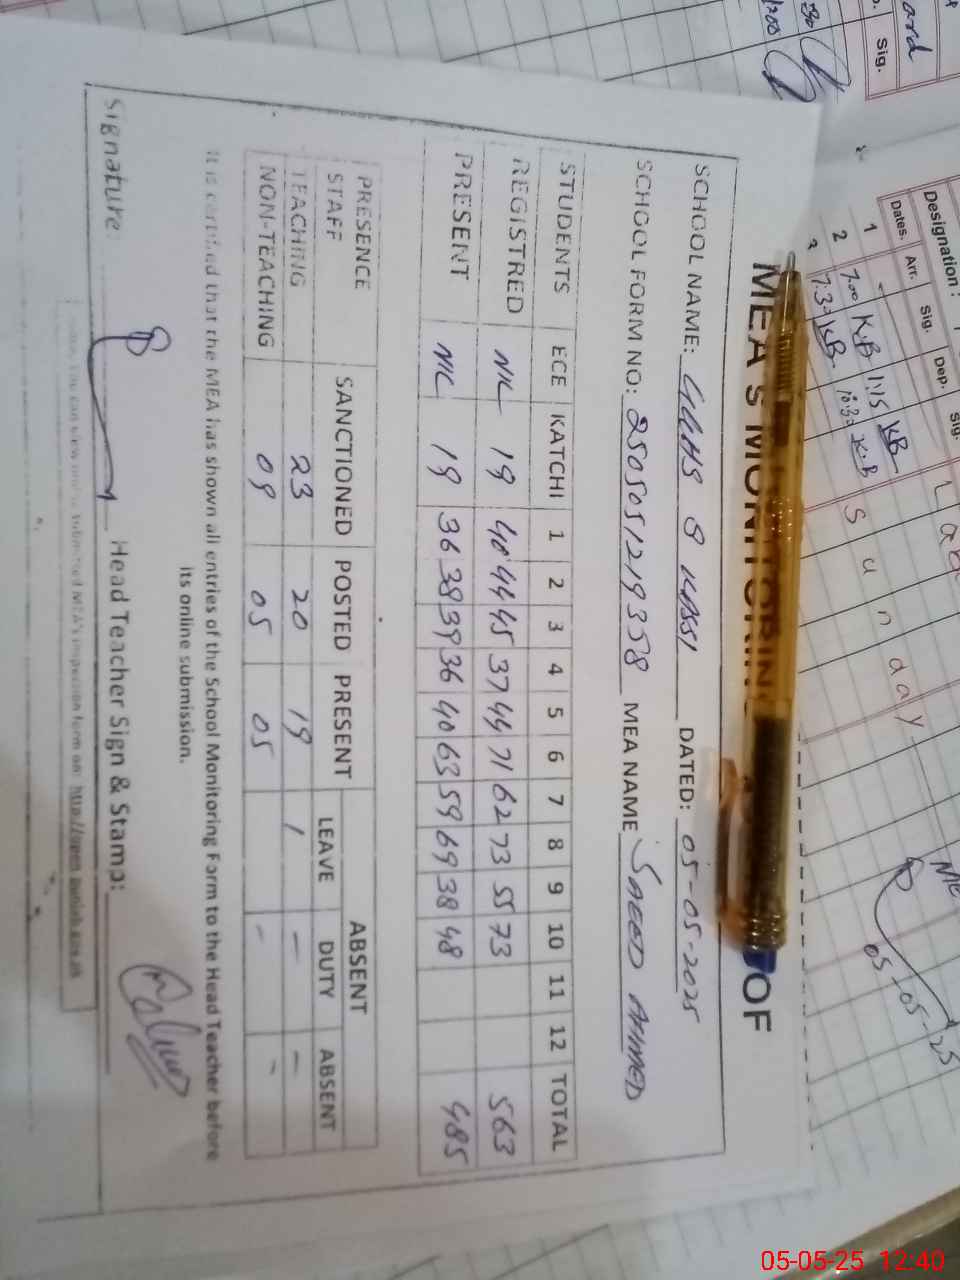 MEA'S MONITORING OF
SCHOOL NAME: GGHS 8 KASSI DATED: 05-05-2025
SCHOOL FORM NO: 2505051219358 MEA NAME SAEED AHMED
STUDENTS ECE KATCHI 1 2 3 4 5 6 7 8 9 10 11 12 TOTAL
REGISTRED NIL 19 40 44 45 37 44 71 62 73 55 73 563
PRESENT NIL 19 36 38 39 36 40 63 59 69 38 48 485
PRESENCE STAFF SANCTIONED POSTED PRESENT ABSENT
LEAVE DUTY ABSENT
TEACHING 23 20 19 1 - -
NON-TEACHING 09 05 05 - -
It is certified that the MEA has shown all entries of the School Monitoring Form to the Head Teacher before
its online submission.
Signature: Head Teacher Sign & Stamp:
Designation :
Dates. Arr. Sig. Dep. Sig.
1 7:00 K.B 1:15 KB
2 7:3 KB 10:3 K.B
3 S u n d a y
05-05-25
Sig.
05-05-25 12:40